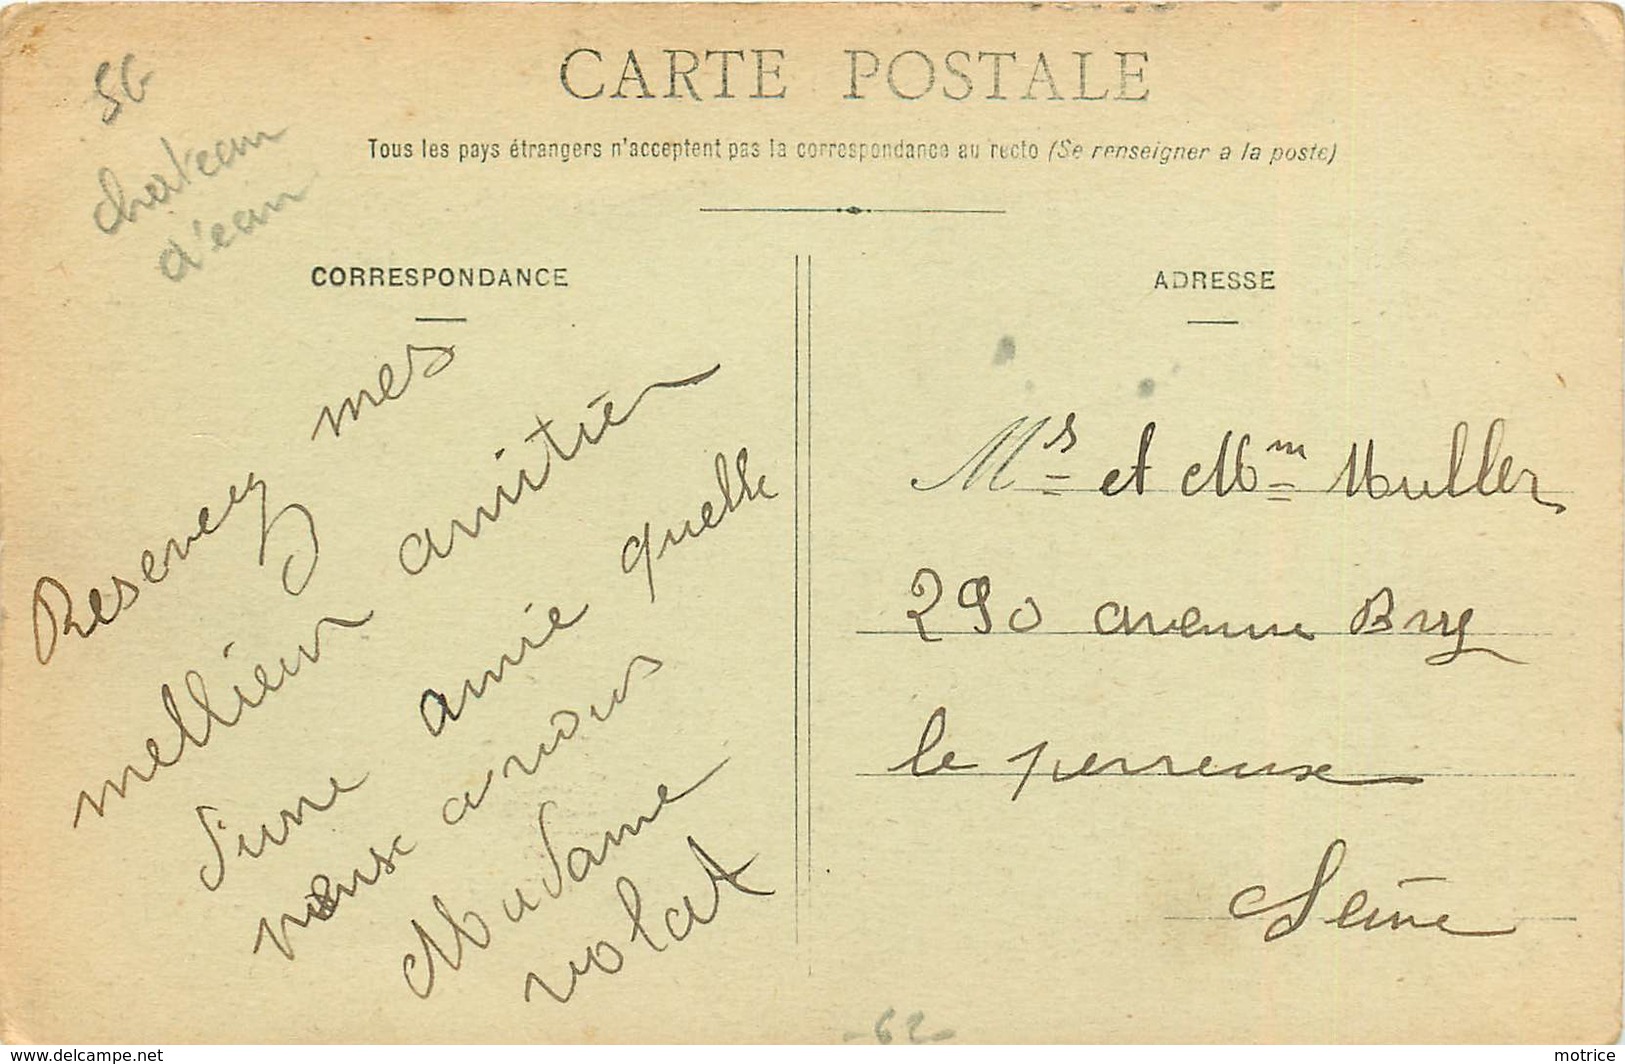 CARTE POSTALE
Tous les pays étrangers n'acceptent pas la correspondance au recto (Se renseigner a la poste)
56
chateau
d'eau
CORRESPONDANCE
Resevez mes
mellieur amitier
d'une amie quelle
pense a vous
Madame
volat
ADRESSE
Mrs et Mm Muller
290 avenue Bry
le perreux
Seine
-62-
www.delcampe.net
motrice